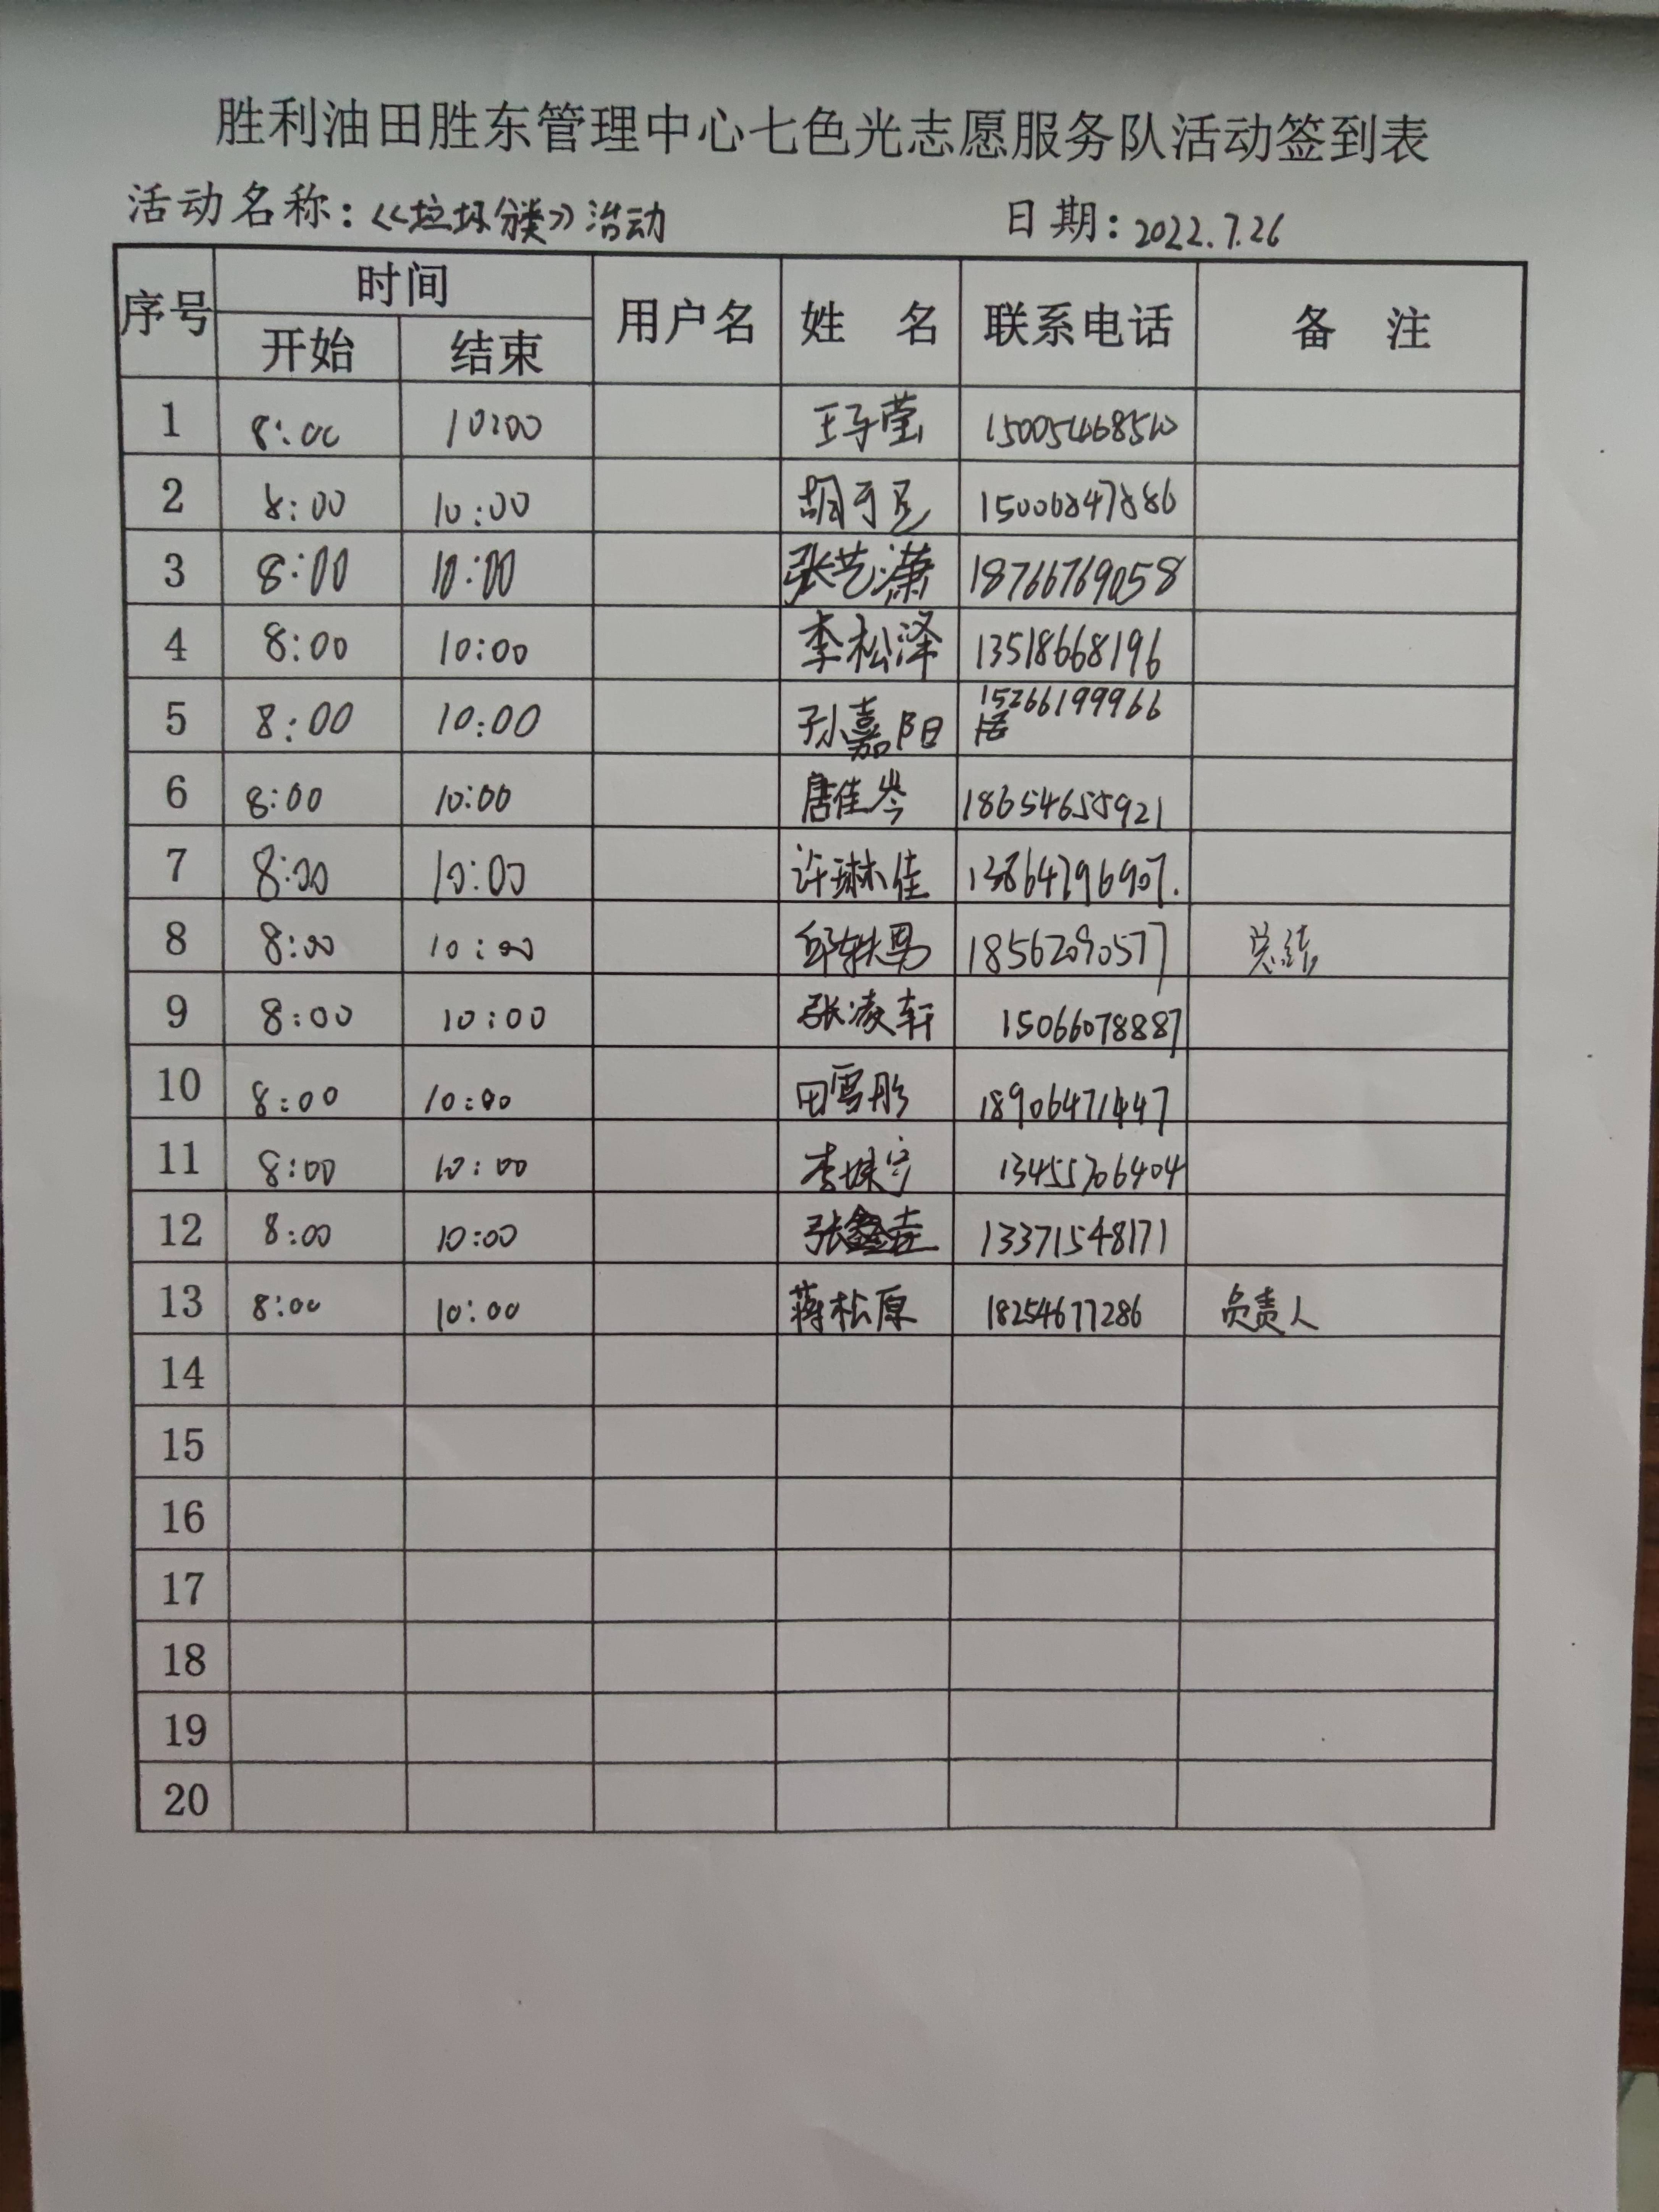 胜利油田胜东管理中心七色光志愿服务队活动签到表
活动名称：《垃圾分类》活动 日期：2022.7.26
序号 时间 用户名 姓 名 联系电话 备 注
开始 结束
1 8:00 10:00 王子莹
2 8:00 10:00 15006847886
3 8:00 10:00 张艺潇 18766769058
4 8:00 10:00 李松泽 13518668196
5 8:00 10:00 孙嘉阳 15266199966
6 8:00 10:00 唐佳岑 18654655921
7 8:00 10:00 许琳佳 13864796907.
8 8:00 10:00 邱轶男 18562090577 总结
9 8:00 10:00 张凌轩 15066078887
10 8:00 10:00 田雪彤 18906471447
11 8:00 10:00 13455706404
12 8:00 10:00 13371548171
13 8:00 10:00 蒋松原 18254677286 负责人
14
15
16
17
18
19
20